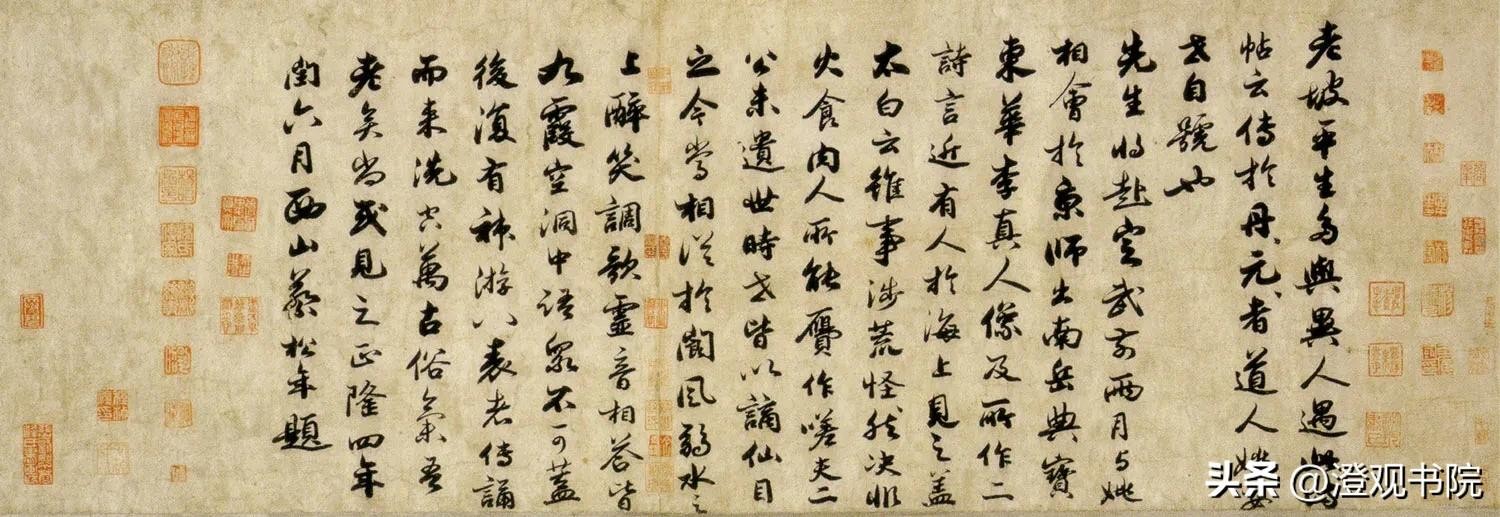 老坡平生多與異人遇此
帖云傳於丹元者道人姚安
世自號也
先生將赴定武前兩月与姚
相會於京師出南岳典寶
東華李真人像及所作二
詩言近有人於海上見之蓋
太白云雖事涉荒怪然決非
火食肉人所能贗作嗟夫二
公未遺世時世皆以謫仙目
之今當相從於閬風弱水之
上醉笑調歌靈音相答皆
九霞空洞中語衆不可蓋
後復有神游八表者傳誦
而來洗空萬古俗氣吾
老矣尚或見之正隆四年
閏六月西山蔡松年題
头条 @澄观书院